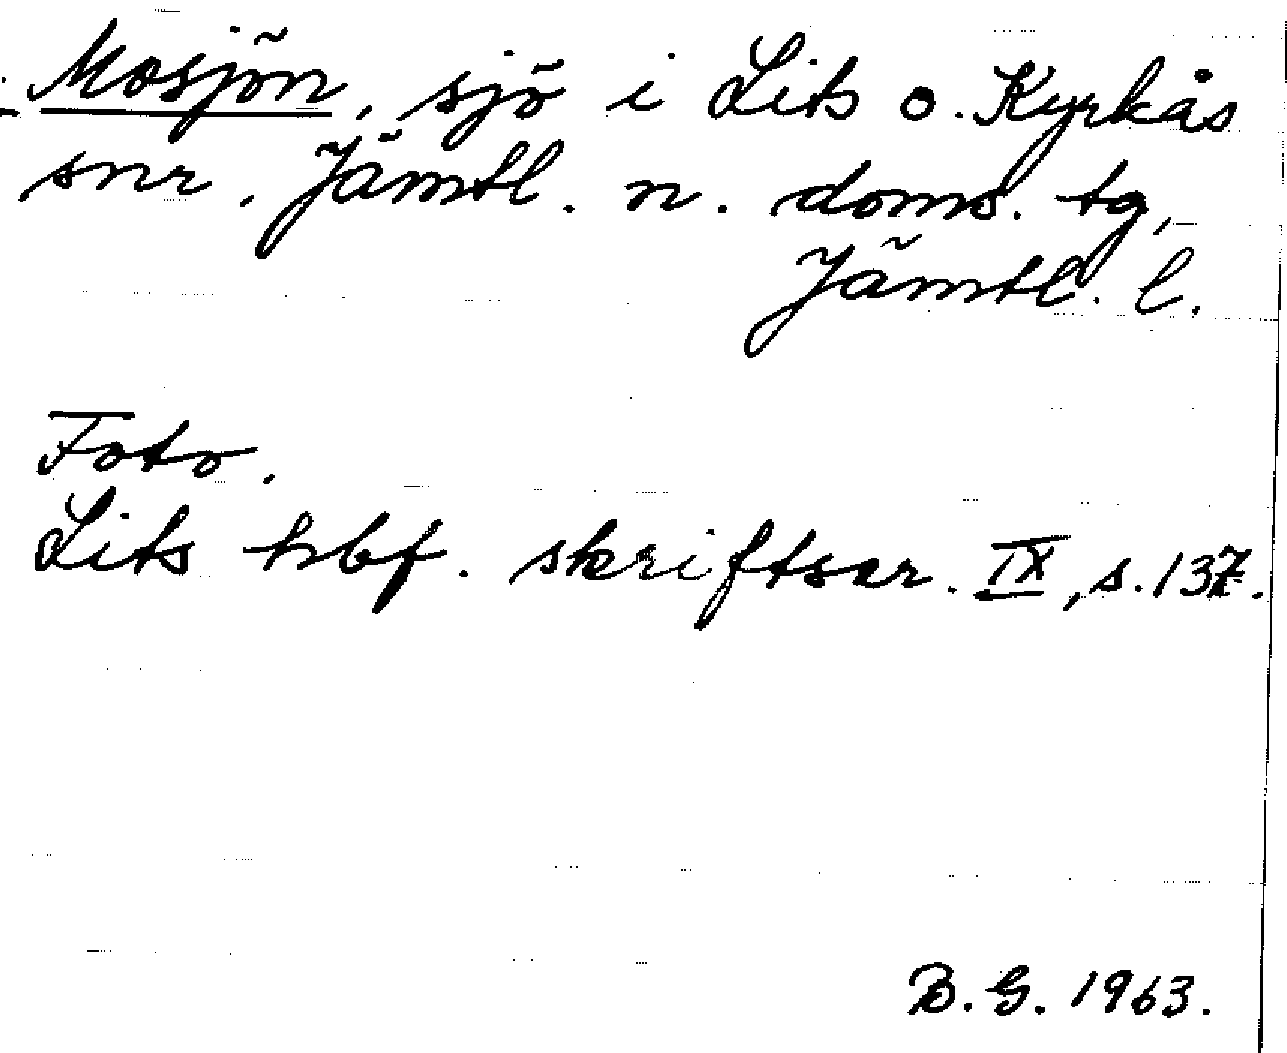 Mosjön, sjö i Lits o. Kyrkås
snr. Jämtl. n. doms. tg,
Jämtl. l.
Foto.
Lits hbf. skriftser. IX, s. 137.
B. G. 1963.